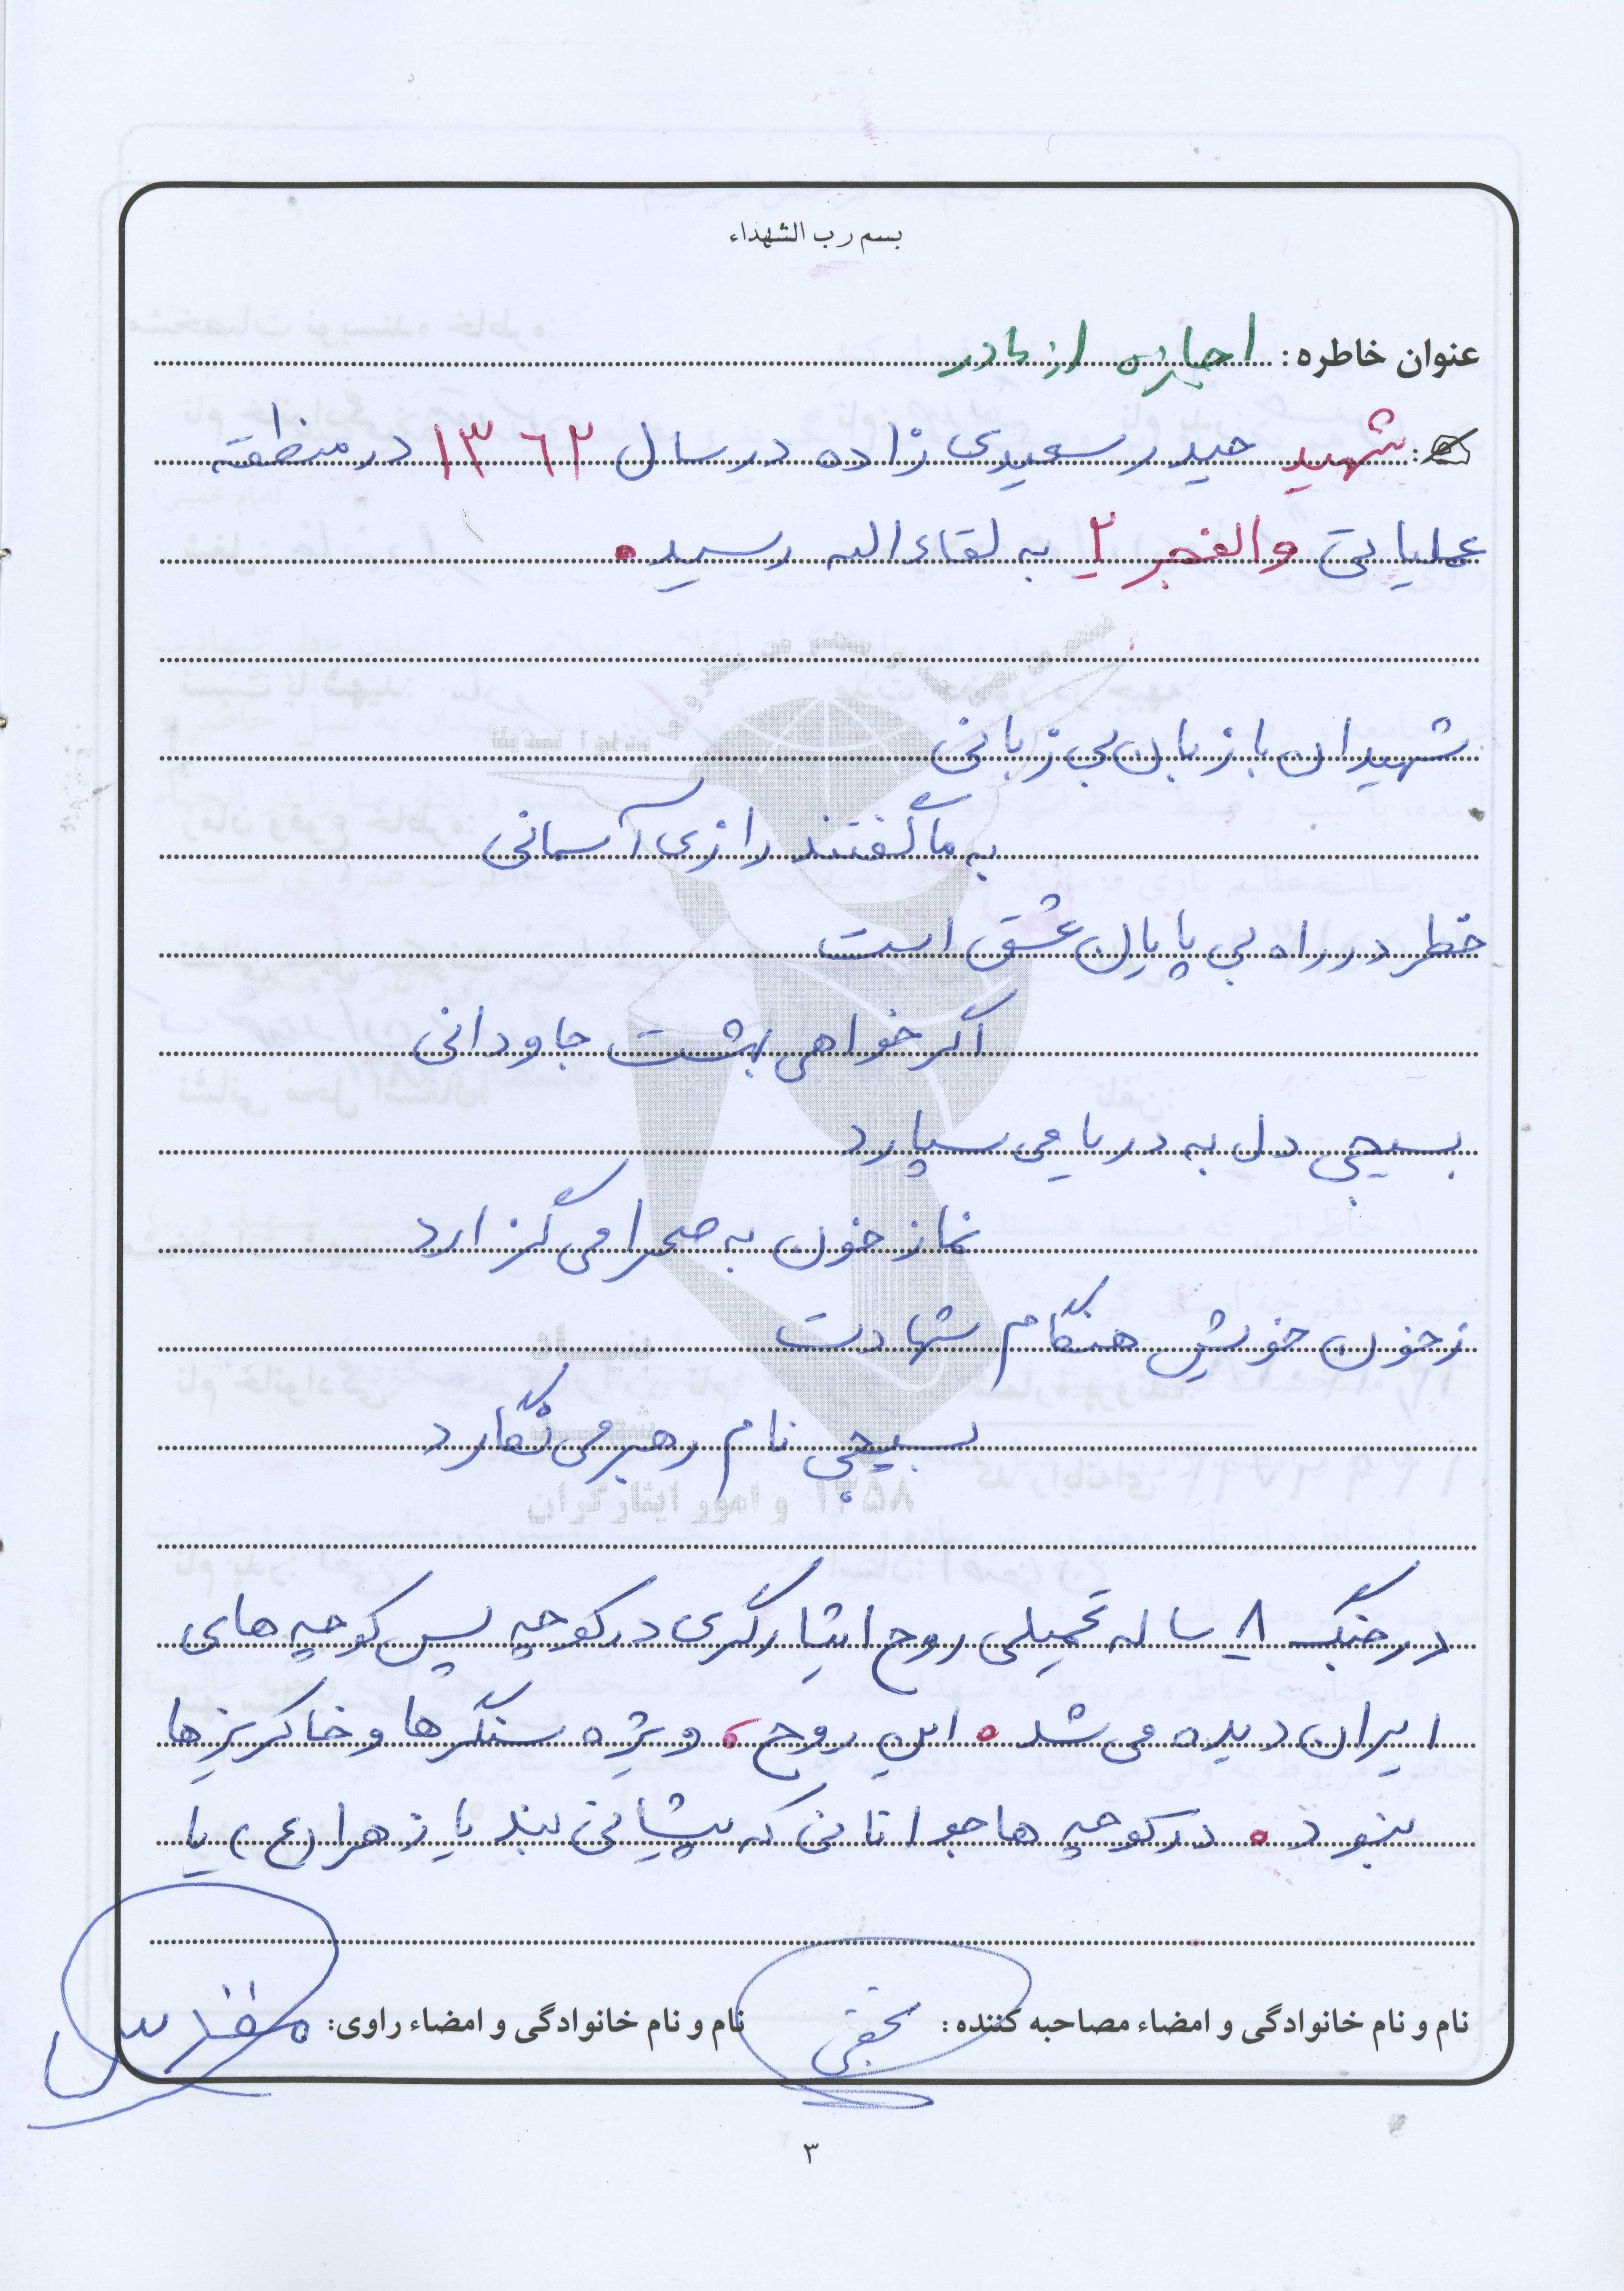 بسم رب الشهداء
عنوان خاطره: اجازه از مادر
شهید حیدر سعیدی زاده در سال ۱۳۶۲ در منطقه
عملیاتی والفجر ۲ به لقاء الله رسید.
شهیدان با زبان بی زبانی
به ما گفتند رازی آسمانی
خطر در راه بی پایان عشق است
اگر خواهی بهشت جاودانی
بسیجی دل به دریا می سپارد
نماز خون به صحرا می گزارد
ز خون خویش هنگام شهادت
بسیجی نام رهبر می نگارد
در جنگ ۸ ساله تحمیلی روح ایثارگری در کوچه پس کوچه های
ایران دیده می شد. این روح، ویژه سنگرها و خاکریزها
نبود. در کوچه ها جوانانی که پیشانی بند یا زهرا (ع)، یا
نام و نام خانوادگی و امضاء مصاحبه کننده: نام و نام خانوادگی و امضاء راوی:
۳